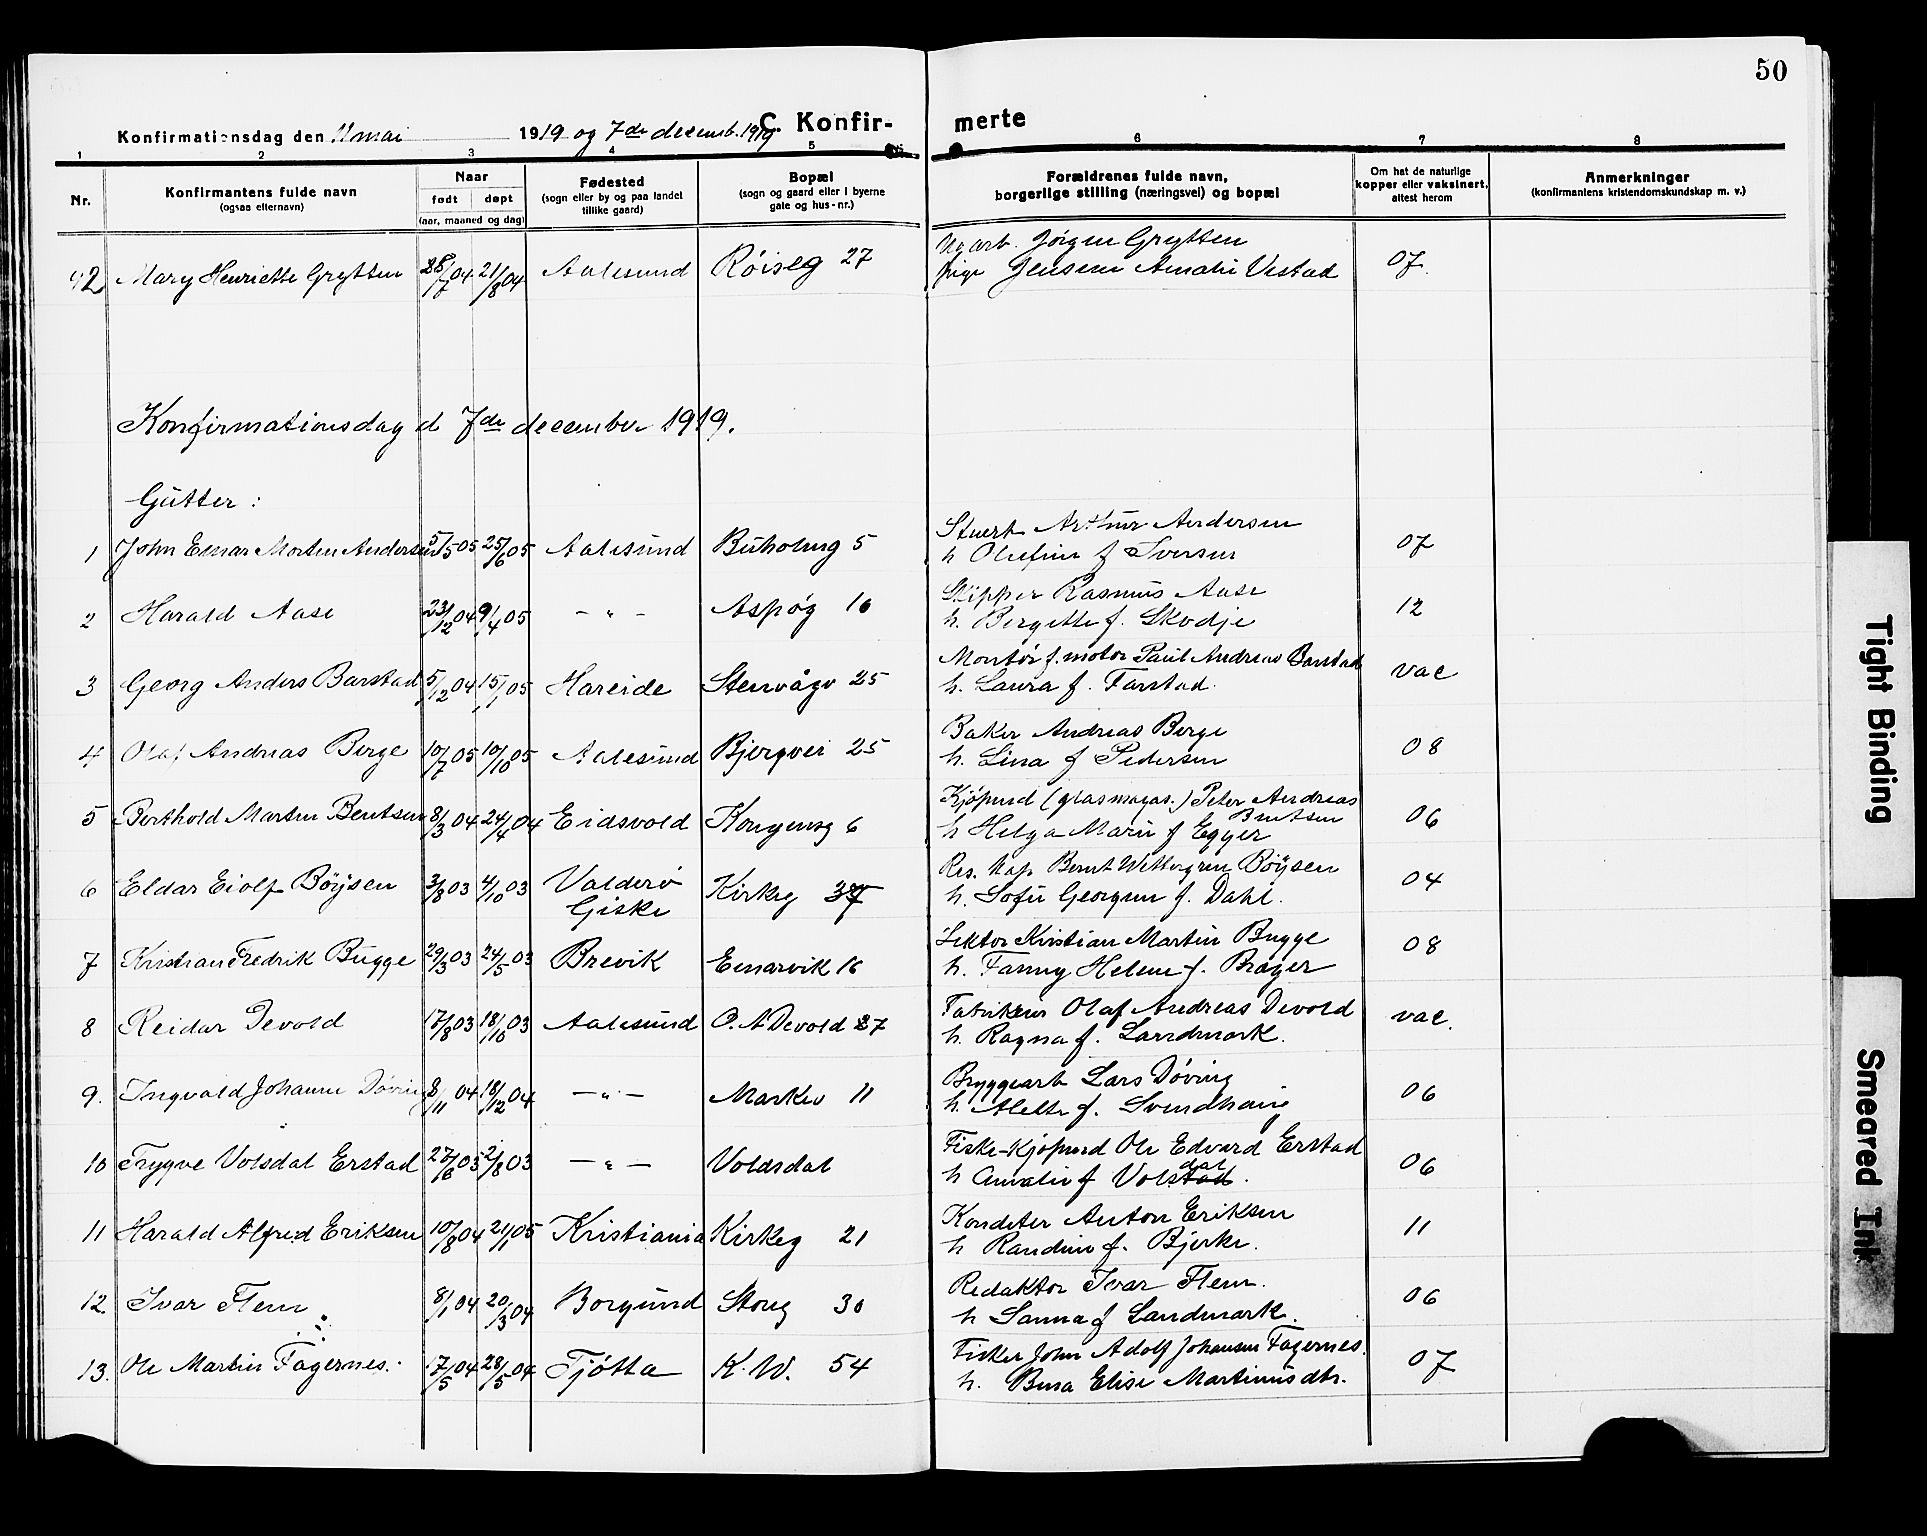 50
C. Konfir- merte
Konfirmationsdag den 11 mai 1919 og 7de decemb. 1919
1 2 3 4 5 6 7 8
Nr.
Konfirmantens fulde navn
(ogsaa efternavn)
Naar
født døpt
(aar, maaned og dag)
Fødested
(sogn eller by og paa landet
tillike gaard)
Bopæl
(sogn og gaard eller i byerne
gate og hus-nr.)
Forældrenes fulde navn,
borgerlige stilling (næringsvei) og bopæl
Om hat de naturlige
kopper eller vaksinert,
attest herom
Anmerkninger
(konfirmantens kristendomskundskap m. v.)
92 Mary Henriette Grytten 28/7 04 21/8 04 Aalesund Røiseg 27 Jørgen Grytten
Pige Jensine Amalie Vestad 07.
Konfirmationsdag d 7de december 1919.
Gutter:
1 John Einar Morten Andersen 5/5 05 25/6 05 Aalesund Buholmg 5 Stuert Arthur Andersen
h Olufine f Iversen 07
2 Harald Aase 23/12 04 9/4 05 - " - Aspøg 10 Skipper Rasmus Aase
h. Bergitte f. Skodje 12
3 Georg Anders Barstad 5/12 04 15/1 05 Hareide Stenvågv 25 Montør f. motor Paul Andreas Barstad
h. Laura f. Farstad. vac
4 Olaf Andreas Berge 10/7 05 10/10 05 Aalesund Bjergvei 25 Baker Andreas Berge
h. Lina f Pedersen 08
5 Berthold Martin Bentsen 8/3 04 24/4 04 Eidsvold Kongensg 6 Kjøpmd (glasmagas.) Peter Andreas
Bentsen
h Helga Marie f Egger 06
6 Eldar Eiolf Bøysen 3/8 03 4/10 03 Valderø
Giske Kirkeg Res. Kap. Bernt Wettergren Bøysen
h. Sofie Georgine f. Dahl. 04
7 Kristian Fredrik Bugge 29/3 03 24/5 03 Brevik Einarvik 16 Lektor Kristian Martin Bugge
h. Fanny Helene f. Brager 08
8 Reidar Devold 17/8 03 18/10 03 Aalesund O. A Devold 27 Fabrikeier Olaf Andreas Devold
h. Ragna f. Landmark. vac.
9. Ingvald Johannes Døving 8/11 04 18/12 04 - " - Markev 11 Bryggearb Lars Døving
h. Alette f. Svendhaug 06
10 Trygve Volsdal Erstad 27/6 03 2/8 03 - " - Voldsdal Fiske-Kjøpmd Ole Edvard Erstad
h Amalie f Volstad dal. 06
11 Harald Alfred Eriksen 10/8 04 21/1 05 Kristiania Kirkeg 21 Konditer Anton Eriksen
h Randine f. Bjerke. 11
12. Ivar Flem 8/1 04 20/3 04 Borgund Storg 30 Redaktør Ivar Flem.
h Sanna f Landmark. 06
13. Ole Martin Fagernes. 17/5 04 28/5 04 Tjøtta K. W. 54 Fisker John Adolf Johansen Fagernes.
h. Elise Martinusdtr. 07
Tight Binding
Smeared Ink